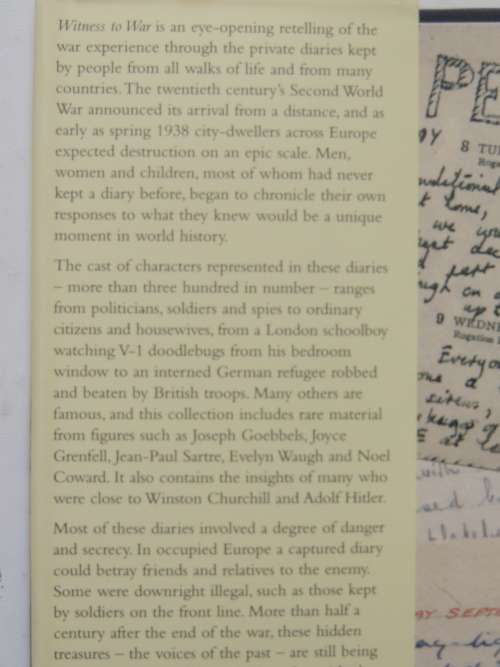 Witness to War is an eye-opening retelling of the
war experience through the private diaries kept
by people from all walks of life and from many
countries. The twentieth century's Second World
War announced its arrival from a distance, and as
early as spring 1938 city-dwellers across Europe
expected destruction on an epic scale. Men,
women and children, most of whom had never
kept a diary before, began to chronicle their own
responses to what they knew would be a unique
moment in world history.
The cast of characters represented in these diaries
– more than three hundred in number – ranges
from politicians, soldiers and spies to ordinary
citizens and housewives, from a London schoolboy
watching V-1 doodlebugs from his bedroom
window to an interned German refugee robbed
and beaten by British troops. Many others are
famous, and this collection includes rare material
from figures such as Joseph Goebbels, Joyce
Grenfell, Jean-Paul Sartre, Evelyn Waugh and Noel
Coward. It also contains the insights of many who
were close to Winston Churchill and Adolf Hitler.
Most of these diaries involved a degree of danger
and secrecy. In occupied Europe a captured diary
could betray friends and relatives to the enemy.
Some were downright illegal, such as those kept
by soldiers on the front line. More than half a
century after the end of the war, these hidden
treasures – the voices of the past – are still being
PE
8 TU
home,
we
9 WEDNE
Rogation
Everyo
sirens,